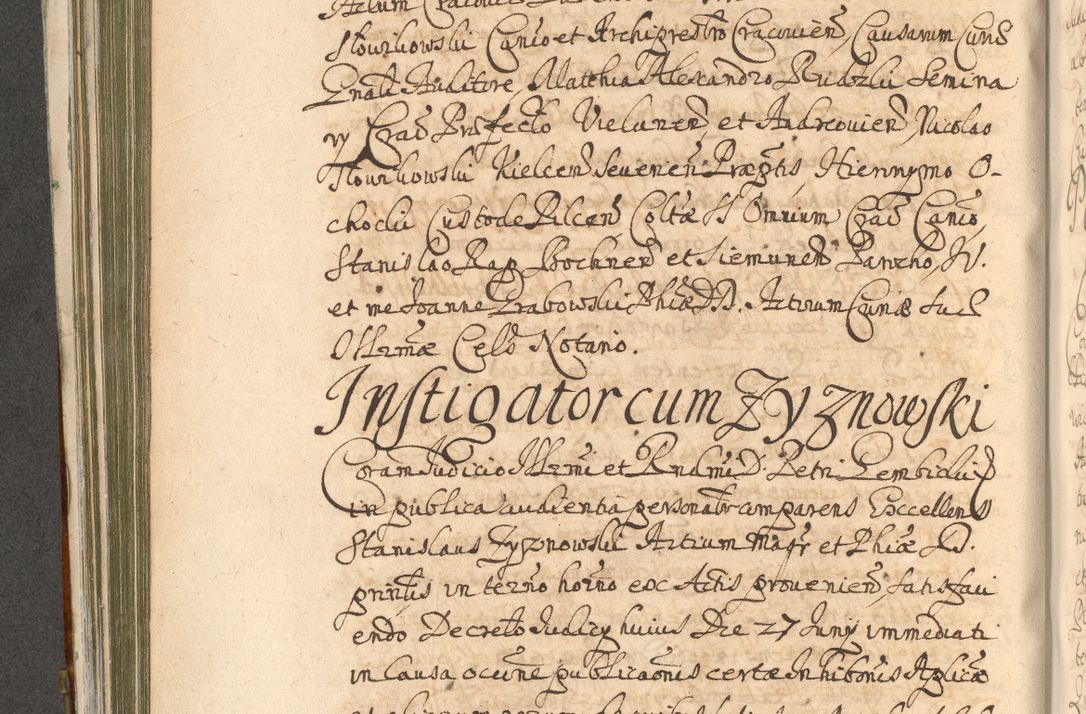 Actum Cracoviæ
Slowikowski Canco et Archipresbro Cracovien, Causarum Curiæ
Gnali Auditore, Matthia Alexandro Rudzki Semina
ry Crac Præfecto Vielunen, et Andreovien, Nicolao
Slowikowski Kielcen Severien Præptis, Hieronymo O-
chocki Custode Pilcen Coltæ SS Omnium Crac Canco,
Stanislao Rap Bochnen et Siemunen Parocho, JV.
et me Joanne Grabowski Phiæ D. Actorum Curiæ suæ
Illrmæ Celsi Notario.
Instigator cum Zyznowski
Coram Judicio Illrmi et Rndmi D. Petri Gembicki
in publica audientia personalr comparens Excellens
Stanislaus Zyznowski Artium Magr et Phiæ D.
prntis in termo horno ex Actis provenien, satisfaci
endo Decreto Judicy huius Die 27 Juny immediati
in Causa occne publicaonis certæ Inhibonis Aplicæ